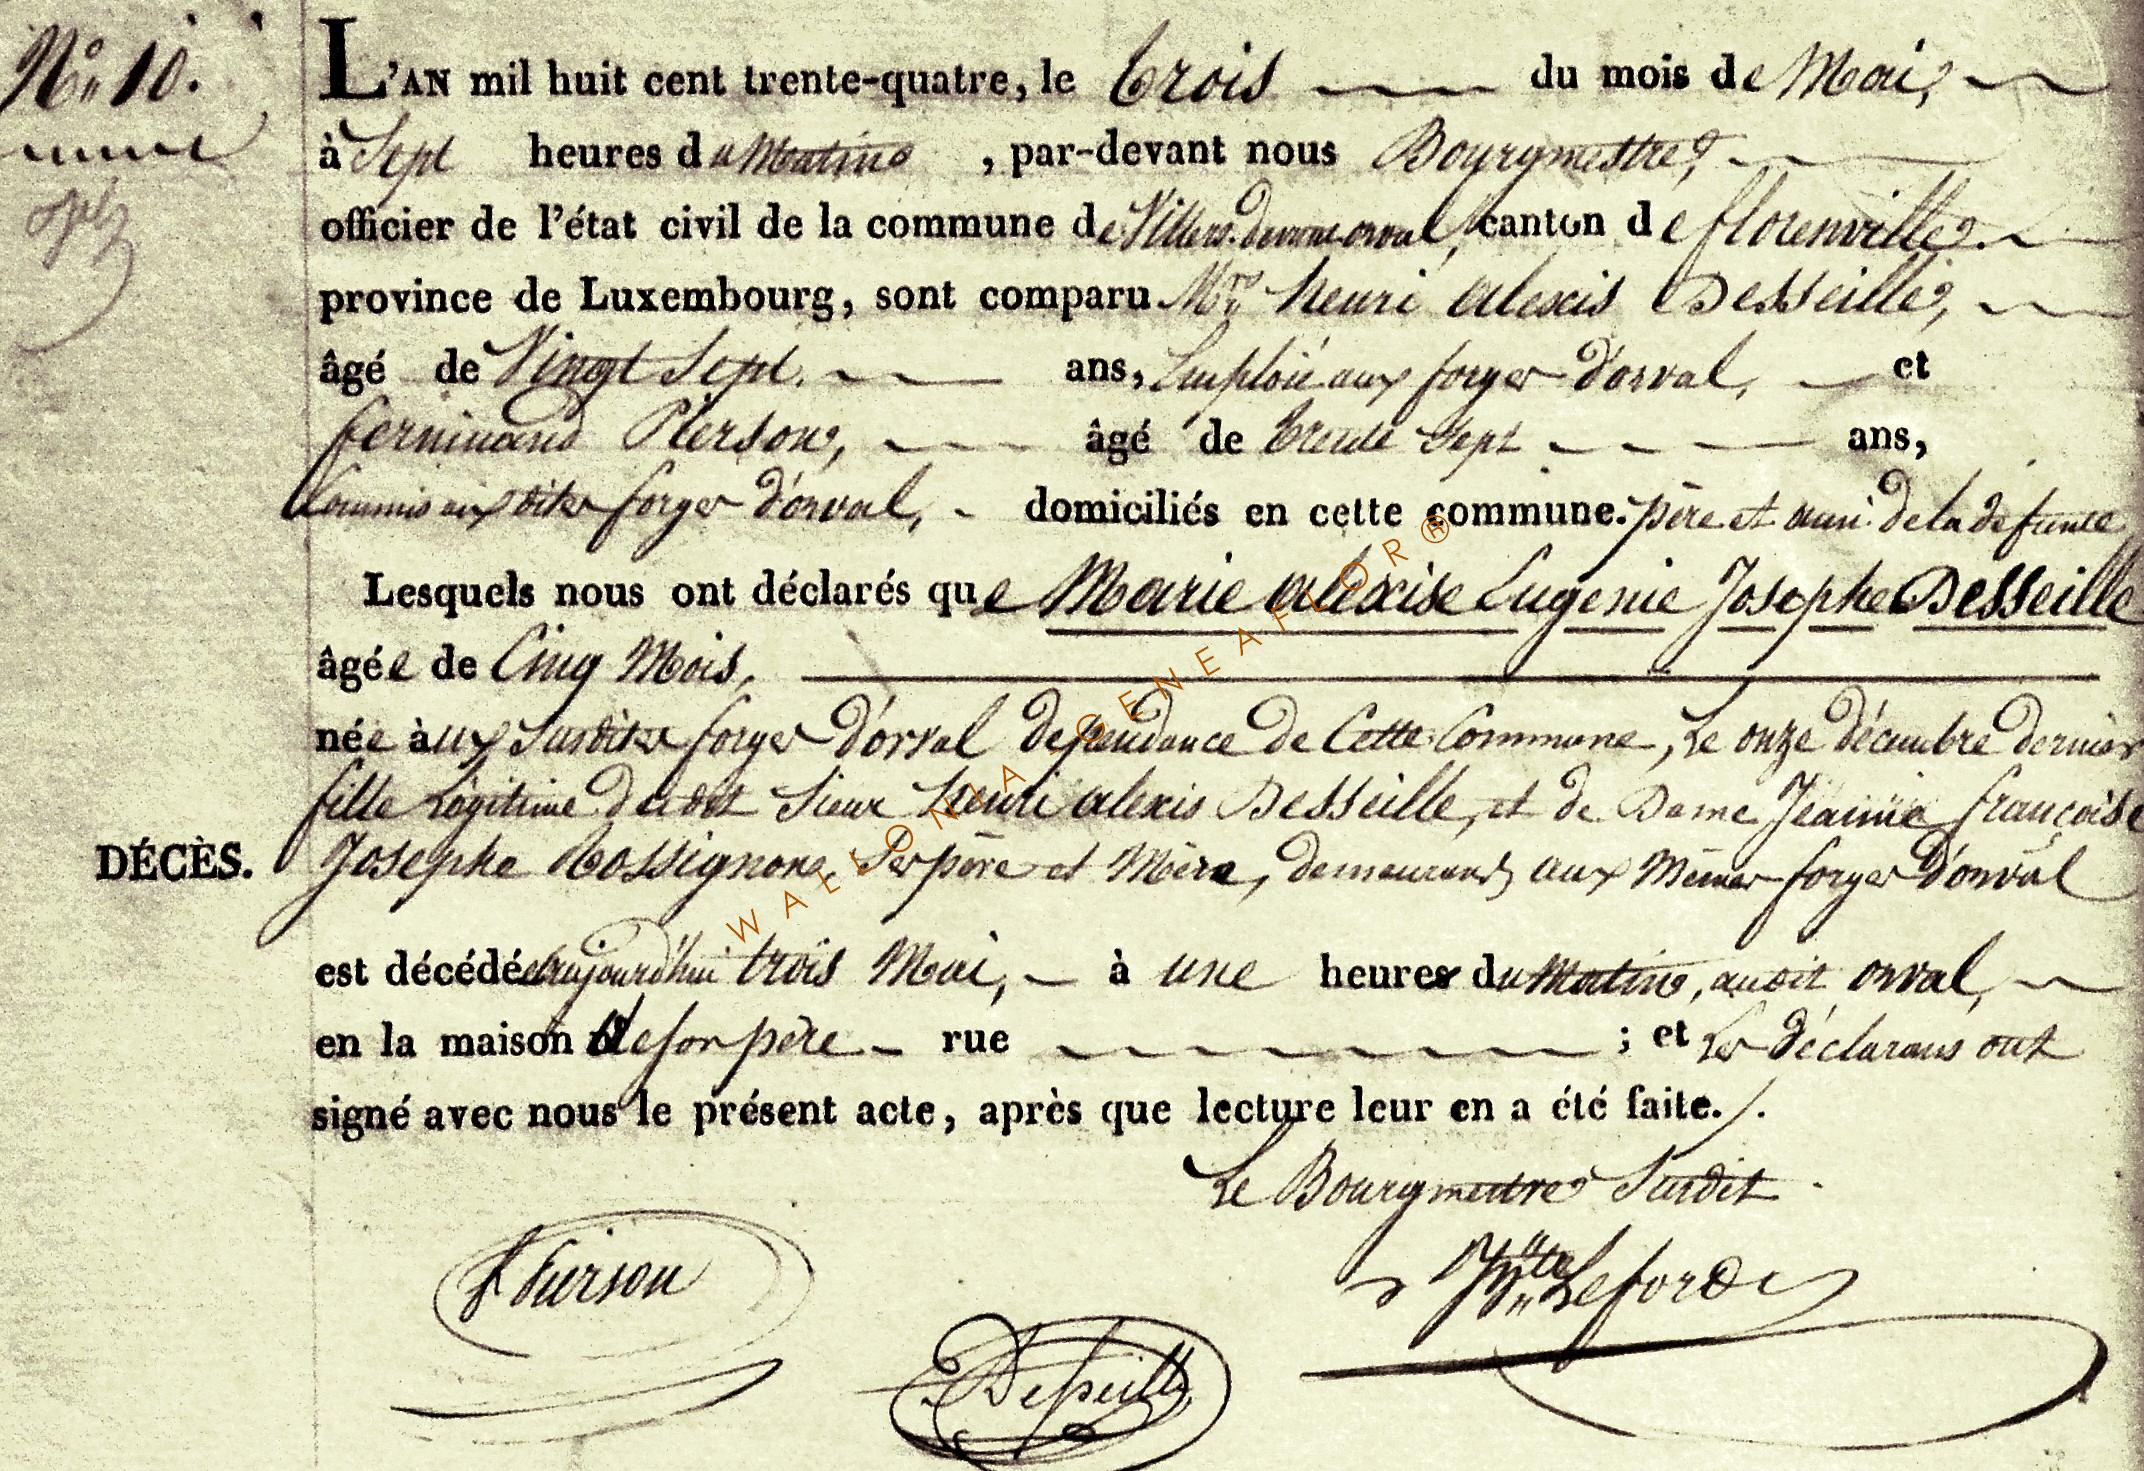 N° 10.
L'AN mil huit cent trente-quatre, le trois du mois de Mai,
à Sept heures du Matin, par-devant nous Bourgmestre,
officier de l'état civil de la commune de Villers devant orval, canton de florenville
province de Luxembourg, sont comparu Mr henri alexis Desseille,
âgé de Vingt Sept ans, Emploié aux forges d'orval, et
ferdinand Pierson, âgé de trente Sept ans,
Commis aux dites forges d'orval, domiciliés en cette commune. père et ami de la defunte
Lesquels nous ont déclarés que Marie alexise Eugenie Josephe Desseille
âgée de Cinq Mois,
née aux Susdites forges d'orval dependance de Cette Commune, Le onze décembre dernier
fille Légitime du dit Sieur henri alexis Desseille, et de Dame Jeanne françoise
DÉCÈS. Josephe Rossignon, Ses père et Mère, demeurant aux Mêmes forges d'orval
est décédée aujourd'hui trois Mai, à une heure du Matin, audit orval,
en la maison de son père rue ; et Les déclarans ont
signé avec nous le présent acte, après que lecture leur en a été faite.
Le Bourgmestre Susdit
F Pierson
Leford
Desseille
WALLONIA GENEAFLOR®